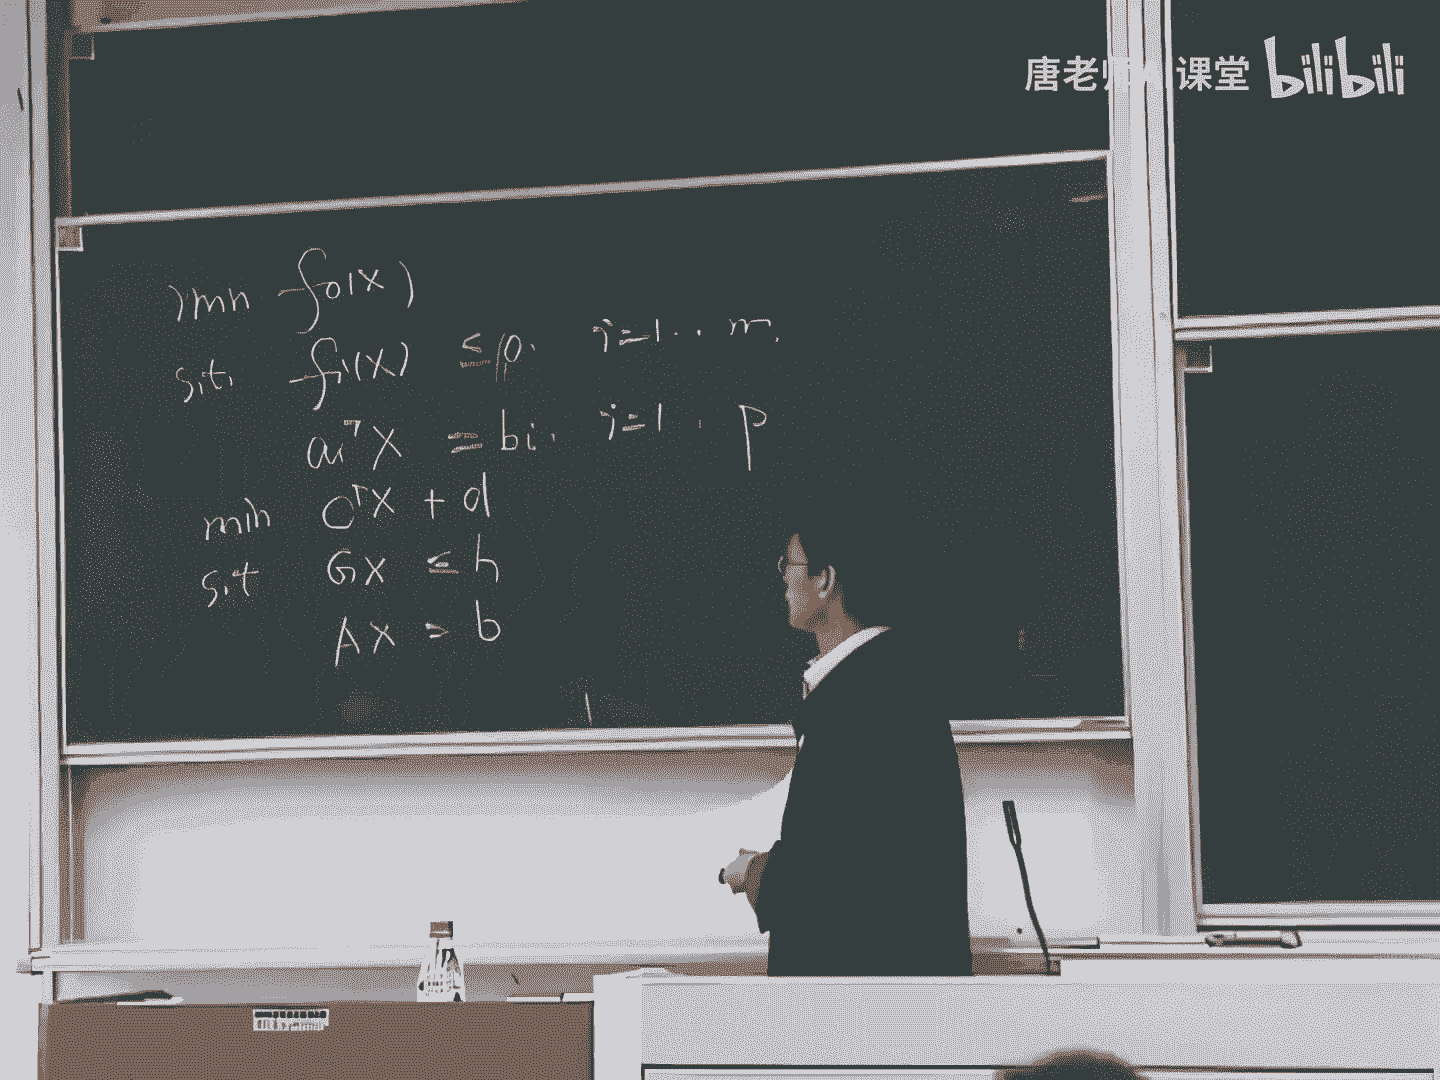 唐老师 课堂 bilibili
min f₀(x)
s.t. fᵢ(x) ≤ 0. i=1.. m.
aᵢᵀx = bi. i=1 . . p
min cᵀx + d
s.t Gx ≤ h
Ax = b